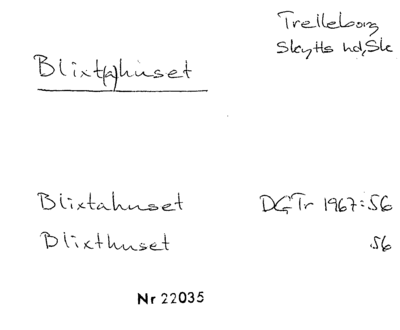 Trelleborg
Skytts hd, Sk
Blixt(a)huset
Blixtahuset DGTr 1967:56
Blixthuset 56
Nr 22035